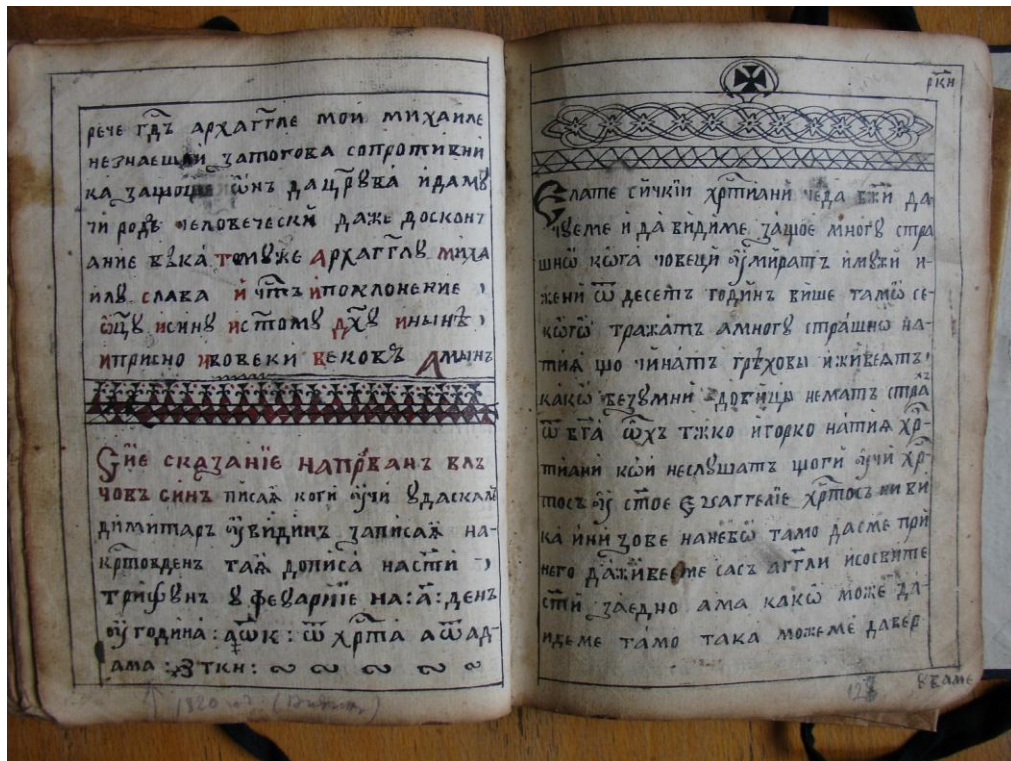 рече гд҃ъ архагг҃ле мои михаиле
незнаешли затогова сопротивни
ка защото ѡ҆нъ дацр҃ꙋва и҆дамꙋ
чи родъ человечески даже досконч
ание вѣка томꙋже Архагг҃лꙋ миха
илꙋ слава и҆ чт҃ь и҆поклонение ,
ѡ҆ц҃ꙋ исинꙋ ист҃омꙋ дх҃ꙋ инынѣ ,
иприсно ивовеки вековъ Амынъ
Сйе сказанїе напрⷪ҇ван влъ
човъ синъ писаѧ коги ᲂу҆чи ꙋдаскал
димитаръ ᲂу҆видинъ записаѧ на-
кр҃товденъ таѧ дописа насти҃ ,
трифꙋнъ ꙋ феѵарїе на:а҃: денъ
ᲂу҆ година : ҂аѿк : ѿ хр҃та аѿад-
ама : ҂зткн : ~ ~ ~ ~ ~
1820
рк҃и
Елате сичкїи хр҃тиани чеда бж҃и да
чꙋеме и҆ да видиме защое многꙋ стра
шнѡ кѡга човеци ᲂу҆мират имꙋжи и-
жени ѿ десетъ годинъ више тамѡ се-
когѡ тражатъ амногꙋ страшнѡ на-
тиѧ що чинатъ грѣховы и҆живеятъ,
какѡ безꙋмни добици немать страхъ
ѿ бг҃а ѡ҆хъ тжко и҆горко натиѧ хр҃-
тиани кои неслꙋшатъ щоги ᲂу҆чи хр҃-
тосъ ᲂу҆ ст҃ое Еѵаггелїе хр҃тосъ ни ви
ка и҆ни зове нанебѡ тамо дасме при
него даживееме сасъ агг҃ли исосвите
сти҃ заедно ама какѡ може да-
идеме тамо така можеме давер
ꙋваме